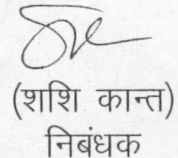 (शशि कान्त)
निबंधक